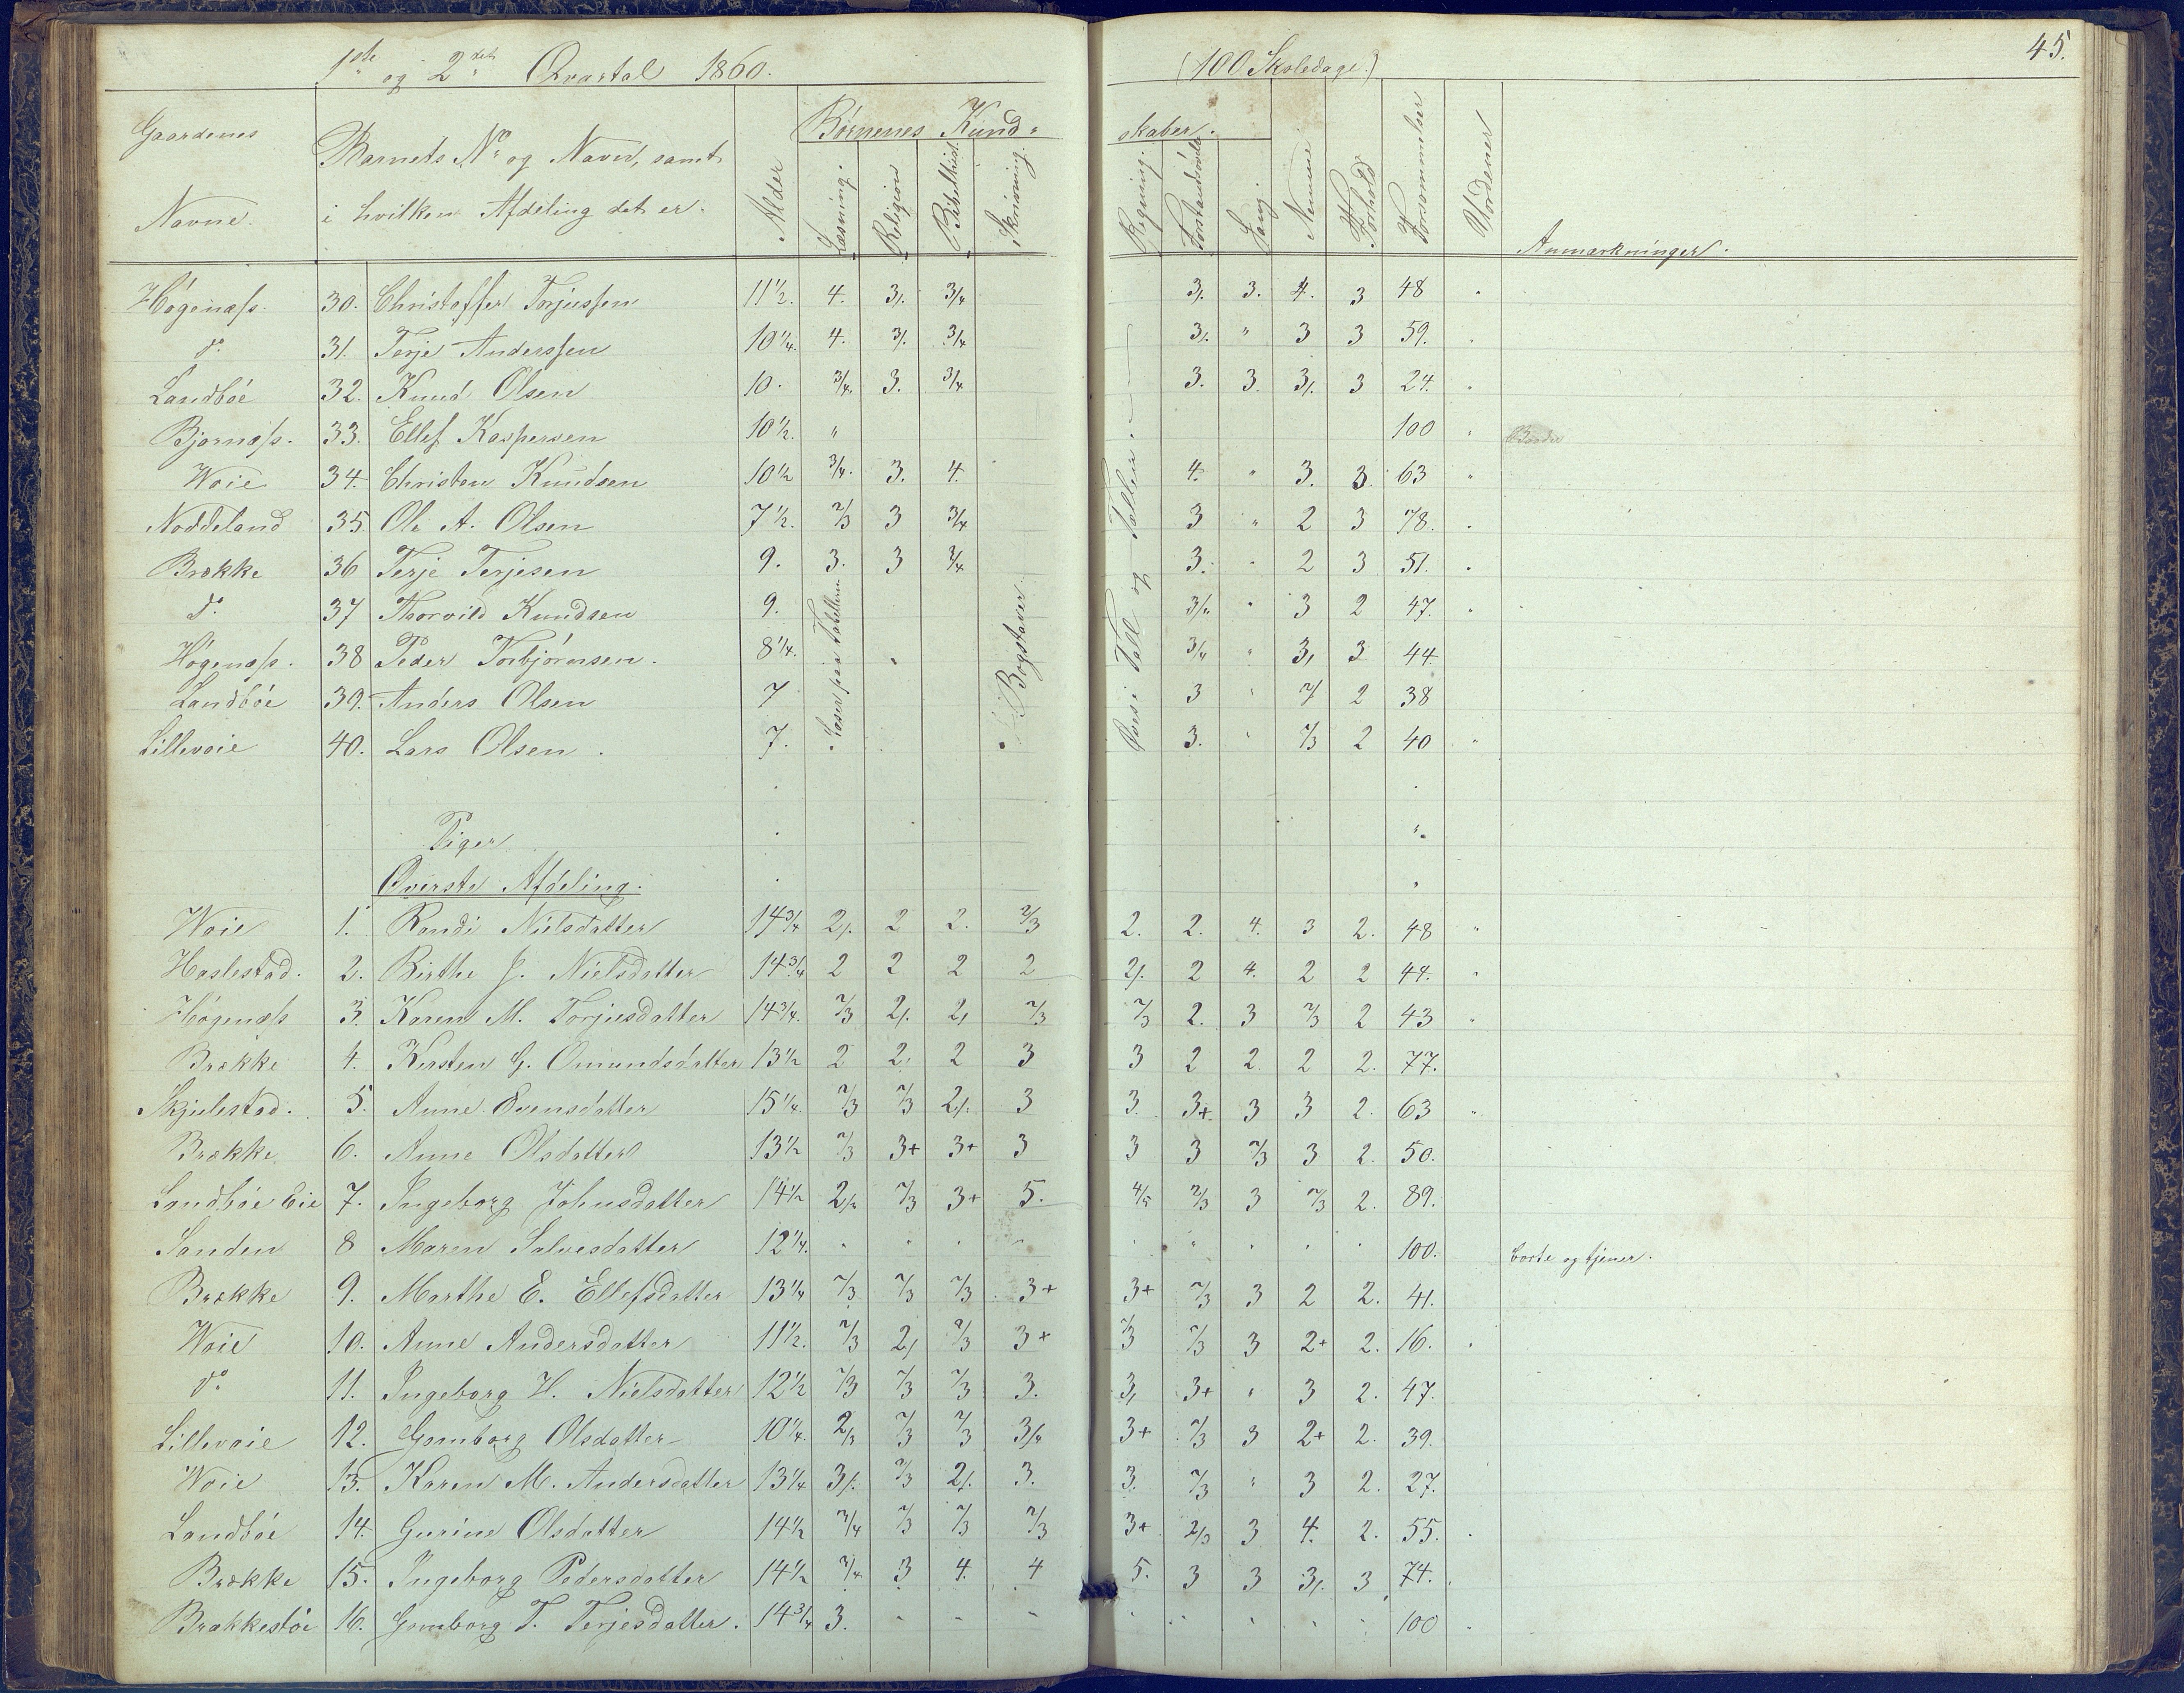 1ste og 2det Qvartal 1860.
(100 Skoledage.)
45.
Gaardenes Navne.
Barnets No og Navn, samt i hvilken Afdeling det er.
Alder
Børnenes Kundskaber.
Læsning. Religion Bibelhist. Skrivning. Regning. Forstandsøvelse Sang Nemme Forhold Forsømmelser Uordener Anmærkninger.
Høgenæss. 30. Christoffer Torjussen 11 1/2. 4. 3/. 3/4 3/. 3. 4. 3 48
do. 31. Terje Anderssen 10 1/4. 4. 3/. 3/4 3/. " 3 3 59.
Landbøe 32. Knud Olsen 10. 3/4. 3. 3/4 3. 3. 3/. 3 24.
Bjørnæss. 33. Ellef Kaspersen 10 1/2. " 100
Woie 34. Christen Knudsen 10 1/2 3/4. 3. 4. 4. " 3. 3. 63
Noddeland 35 Ole A. Olsen 7 1/2. 2/3 3 3/4 3 " 2 3 78.
Brække 36 Terje Terjesen 9. 3. 3 3/4 3. " 2 3 51.
do. 37 Thorvild Knudsen 9. 3/4 " 3 2 47.
Høgenæss. 38 Peder Torbjørnsen. 8 1/4. 3/4 " 3/ 3 44
Landbøe 39. Anders Olsen 7 3 " 2/ 2 38
Lillevoie 40. Lars Olsen. 7. 3. " 2/3 2 40
Læser paa Tabellerne
Bogstaver.
Øves i Tal og Taller
Piger
Øverste Afdeling.
Woie 1. Randi Nielsdatter 14 3/4 2/. 2 2. 2/3 2. 2. 4. 3 2. 48
Haslestad. 2. Birthe J. Nielsdatter 14 3/4 2 2 2 2 2/. 2 4. 2 2 44.
Høgenæss 3. Karen M. Torjusdatter 14 3/4. 2/3 2/. 2/ 2/3 2/3 2. 3 2/3 2 43
Brække 4. Kirsten G. Omundsdatter 13 1/2 2 2/ 2 3 3 2 2 2 2. 77.
Skjulestad. 5. Anne Evensdatter 15 1/4. 2/3 2/3 2/. 3 3. 3+ 3 3 2. 63
Brække 6. Anne Olsdatter 13 1/2 2/3 3+ 3+ 3 3 3 2/3 3 2. 50.
Landbøe Eie 7. Ingeborg Johnsdatter 14 1/2 2/3 2/3 3+ 5. 4/5 2/3 3 2/3 2. 89.
Sanden 8 Maren Salvesdatter 12 1/4. " " " " " " " " " 100. borte og tjener.
Brække 9. Marthe E. Ellefsdatter 13 1/4 2/3 2/3 2/3 3+ 3+ 2/3 3 2 2. 41.
Woie 10. Anne Andersdatter 11 1/2. 2/3 2/ 2/3 3+ 2/3 2/3 3 2+ 2. 16.
do. 11. Ingeborg H. Nielsdatter 12 1/2 2/3 2/3 2/3 3. 3/ 3+ " 3 2. 47.
Lillevoie 12. Gomborg Olsdatter 10 1/4. 2/3 2/3 2/3 3/4 3+ 2/3 3 2+ 2. 39.
Woie 13. Karen M. Andersdatter 13 1/4 3/. 2/3 2/. 3. 3. 2/3 " 3 2. 27.
Landbøe 14. Gurine Olsdatter 14 1/2 3/4 2/3 2/3 2/3 3+ 2/3 3 4. 2. 55.
Brække 15. Ingeborg Pedersdatter 14 1/2 3/4 3 4. 4 5. 3 3 3/. 3 74.
Brækkestøe 16. Gomborg T. Terjesdatter. 14 3/4 3. " " " " " " " " 100